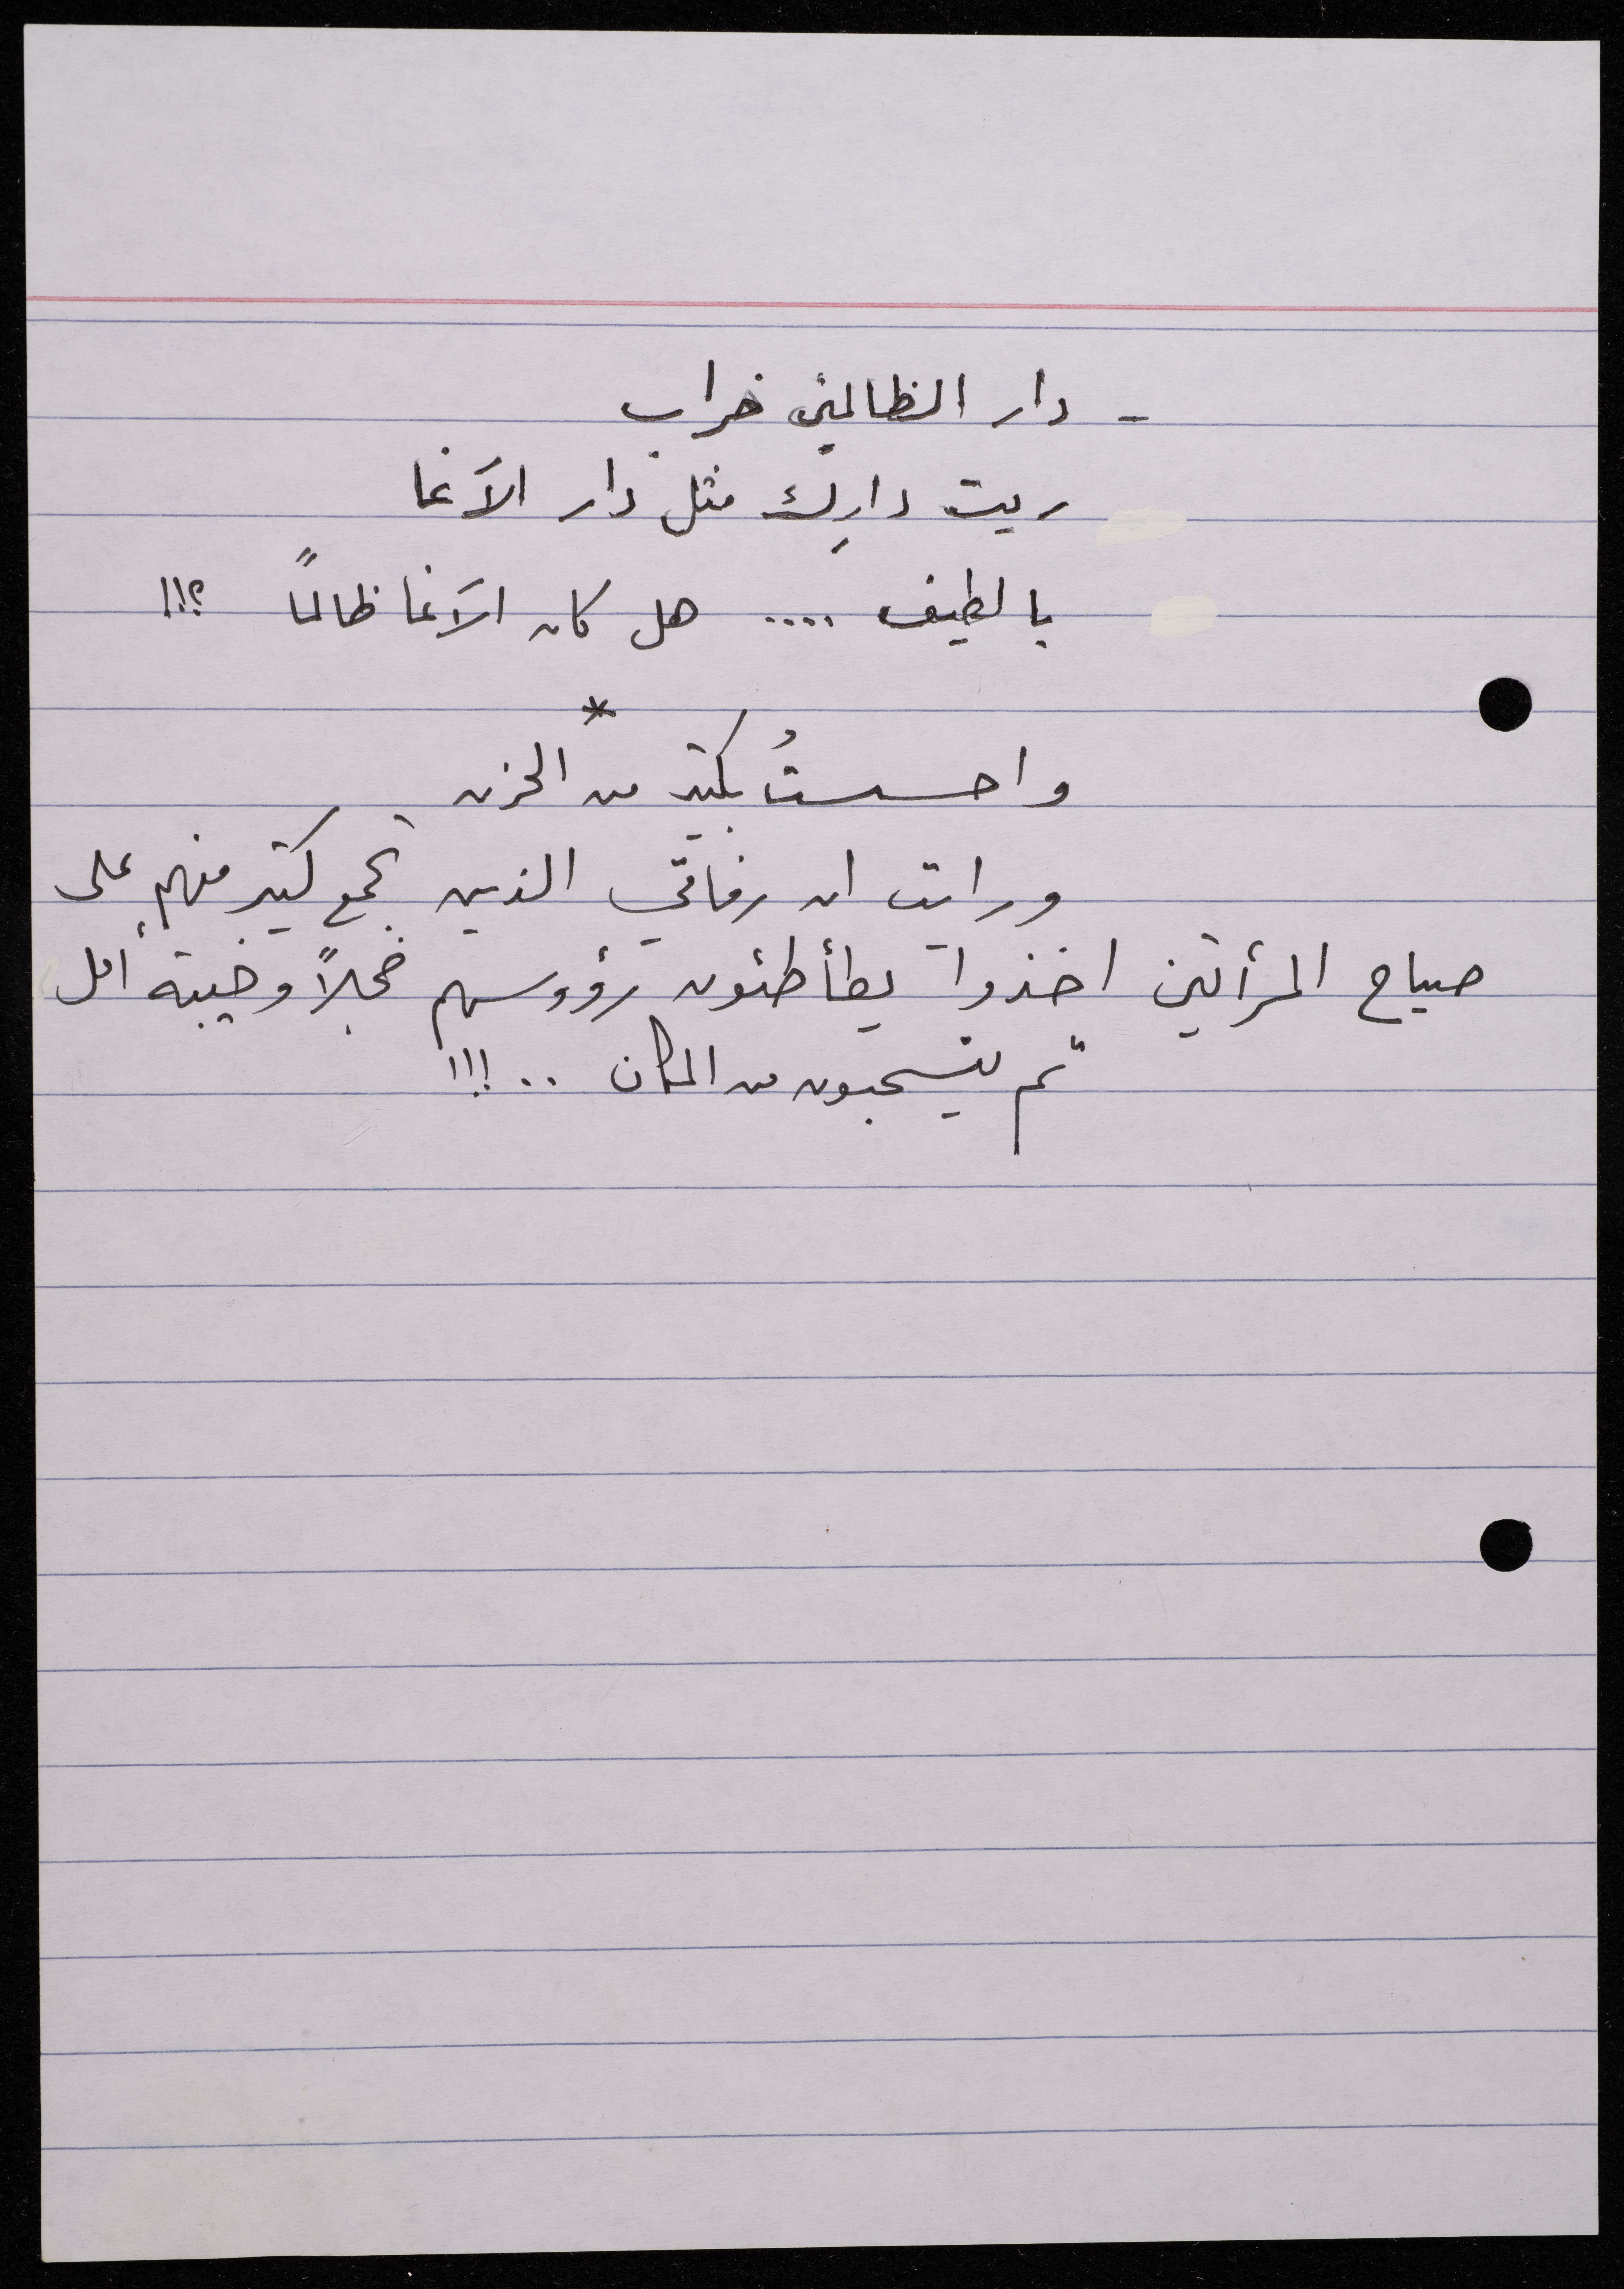 - دار الظالمين خراب
ريت دارِك مثل دار الآغا
يا لطيف .... هل كان الآغا ظالماً ؟!!
*
واحسستُ بكثير من الحزن
ورايت ان رفاقي الذين تجمع كثير منهم على
صياح المرأتين اخذوا يطأطئون رؤوسهم خجلاً وخيبة أمل
ثم ينسحبون من المكان .. !!!